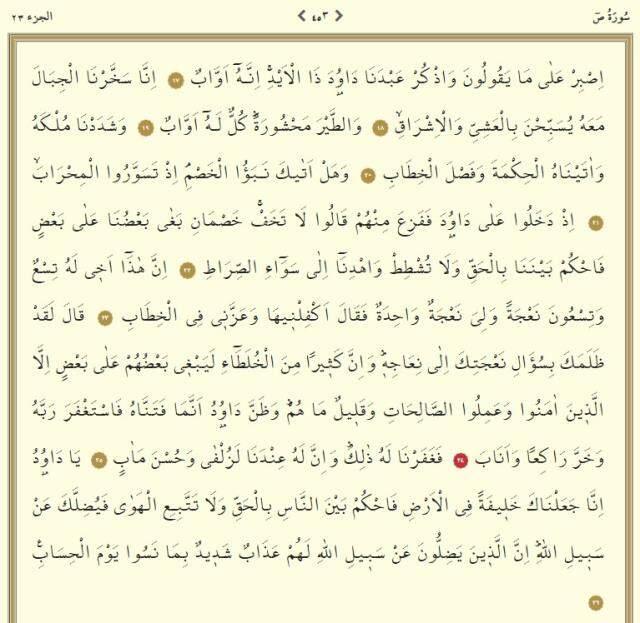 سُورَةُ صٓ ٤٥٣ الجزء ٢٣
اِصْبِرْ عَلٰى مَا يَقُولُونَ وَاذْكُرْ عَبْدَنَا دَاوُ۫دَ ذَا الْاَيْدِۚ اِنَّهُٓ اَوَّابٌ ١٧ اِنَّا سَخَّرْنَا الْجِبَالَ
مَعَهُ يُسَبِّحْنَ بِالْعَشِيِّ وَالْاِشْرَاقِۙ ١٨ وَالطَّيْرَ مَحْشُورَةًۜ كُلٌّ لَهُٓ اَوَّابٌ ١٩ وَشَدَدْنَا مُلْكَهُ
وَاٰتَيْنَاهُ الْحِكْمَةَ وَفَصْلَ الْخِطَابِ ٢٠ وَهَلْ اَتٰيكَ نَبَؤُا الْخَصْمِۢ اِذْ تَسَوَّرُوا الْمِحْرَابَۙ
٢١ اِذْ دَخَلُوا عَلٰى دَاوُ۫دَ فَفَزِعَ مِنْهُمْ قَالُوا لَا تَخَفْۚ خَصْمَانِ بَغٰى بَعْضُنَا عَلٰى بَعْضٍ
فَاحْكُمْ بَيْنَنَا بِالْحَقِّ وَلَا تُشْطِطْ وَاهْدِنَٓا اِلٰى سَوَٓاءِ الصِّرَاطِ ٢٢ اِنَّ هٰذَٓا اَخ۪ي لَهُ تِسْعٌ
وَتِسْعُونَ نَعْجَةً وَلِيَ نَعْجَةٌ وَاحِدَةٌ فَقَالَ اَكْفِلْن۪يهَا وَعَزَّن۪ي فِي الْخِطَابِ ٢٣ قَالَ لَقَدْ
ظَلَمَكَ بِسُؤَالِ نَعْجَتِكَ اِلٰى نِعَاجِه۪ۜ وَاِنَّ كَث۪يرًا مِنَ الْخُلَطَٓاءِ لَيَبْغ۪ي بَعْضُهُمْ عَلٰى بَعْضٍ اِلَّا
الَّذ۪ينَ اٰمَنُوا وَعَمِلُوا الصَّالِحَاتِ وَقَل۪يلٌ مَا هُمْۜ وَظَنَّ دَاوُ۫دُ اَنَّمَا فَتَنَّاهُ فَاسْتَغْفَرَ رَبَّهُ
وَخَرَّ رَاكِعًا وَاَنَابَ ٢٤ فَغَفَرْنَا لَهُ ذٰلِكَۜ وَاِنَّ لَهُ عِنْدَنَا لَزُلْفٰى وَحُسْنَ مَاٰبٍ ٢٥ يَا دَاوُ۫دُ
اِنَّا جَعَلْنَاكَ خَل۪يفَةً فِي الْاَرْضِ فَاحْكُمْ بَيْنَ النَّاسِ بِالْحَقِّ وَلَا تَتَّبِعِ الْهَوٰى فَيُضِلَّكَ عَنْ
سَب۪يلِ اللّٰهِۜ اِنَّ الَّذ۪ينَ يَضِلُّونَ عَنْ سَب۪يلِ اللّٰهِ لَهُمْ عَذَابٌ شَد۪يدٌ بِمَا نَسُوا يَوْمَ الْحِسَابِ۟
٢٦